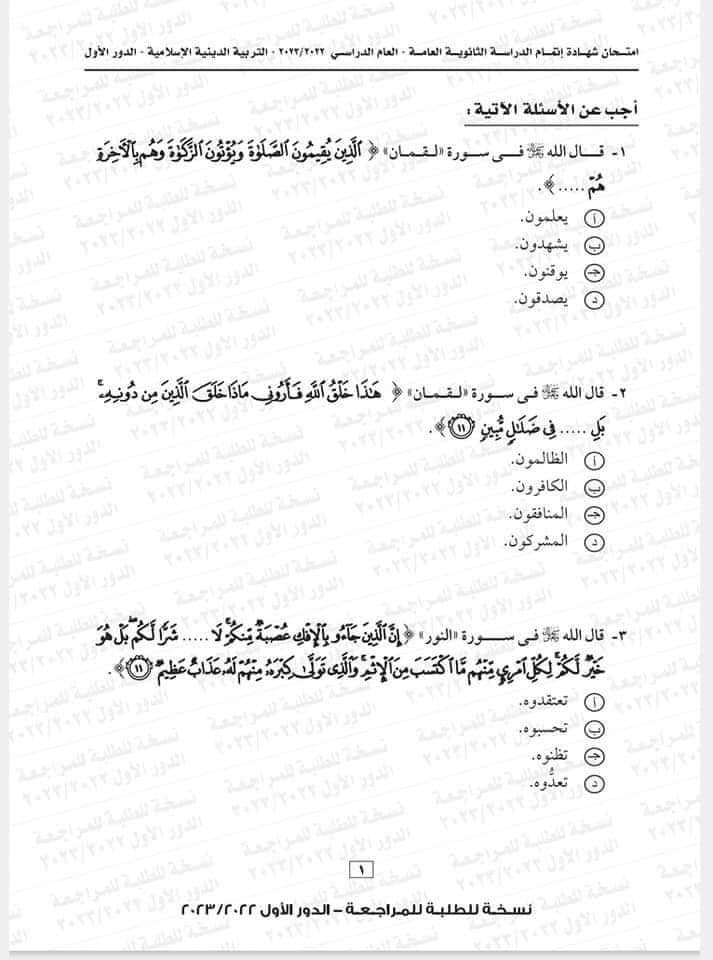 امتحان شهادة إتمام الدراسة الثانوية العامة - العام الدراسي ٢٠٢٣/٢٠٢٢ - التربية الدينية الإسلامية - الدور الأول
أجب عن الأسئلة الآتية :
١- قال الله ﷻ فى سورة «لقمان» ﴿ ٱلَّذِينَ يُقِيمُونَ ٱلصَّلَوٰةَ وَيُؤْتُونَ ٱلزَّكَوٰةَ وَهُم بِٱلْأَخِرَةِ
هُمْ ..... ﴾.
أ يعلمون.
ب يشهدون.
جـ يوقنون.
د يصدقون.
٢- قال الله ﷻ فى سورة «لقمان» ﴿ هَٰذَا خَلْقُ ٱللَّهِ فَأَرُونِى مَاذَا خَلَقَ ٱلَّذِينَ مِن دُونِهِۦ ۚ
بَلِ ..... فِى ضَلَٰلٍ مُّبِينٍ ١١ ﴾.
أ الظالمون.
ب الكافرون.
جـ المنافقون.
د المشركون.
٣- قال الله ﷻ فى سورة «النور» ﴿ إِنَّ ٱلَّذِينَ جَآءُو بِٱلْإِفْكِ عُصْبَةٌ مِّنكُمْ ۚ لَا ..... شَرًّا لَّكُم ۖ بَلْ هُوَ
خَيْرٌ لَّكُمْ ۚ لِكُلِّ ٱمْرِئٍ مِّنْهُم مَّا ٱكْتَسَبَ مِنَ ٱلْإِثْمِ ۚ وَٱلَّذِى تَوَلَّىٰ كِبْرَهُۥ مِنْهُمْ لَهُۥ عَذَابٌ عَظِيمٌ ١١ ﴾.
أ تعتقدوه.
ب تحسبوه.
جـ تظنوه.
د تعدُّوه.
١
نسخة للطلبة للمراجعة – الدور الأول ٢٠٢٣/٢٠٢٢